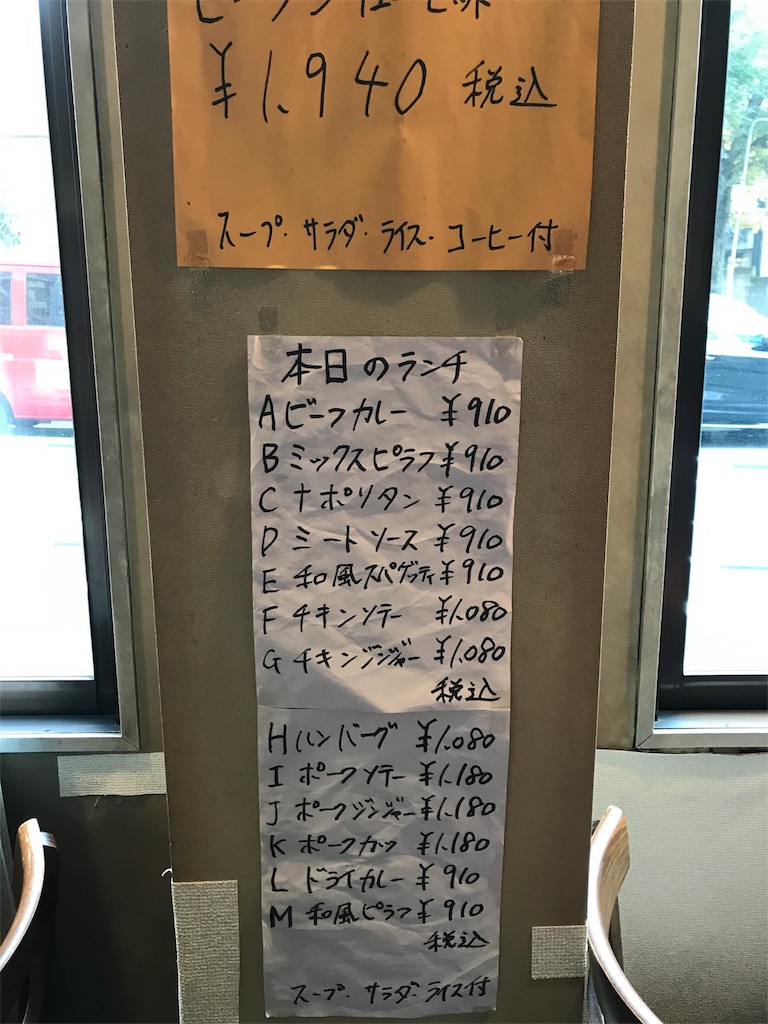 ¥1,940 税込
スープ・サラダ・ライス・コーヒー付
本日のランチ
A ビーフカレー ¥910
B ミックスピラフ ¥910
C ナポリタン ¥910
D ミートソース ¥910
E 和風スパゲッティ ¥910
F チキンソテー ¥1,080
G チキンジンジャー ¥1,080
税込
H ハンバーグ ¥1,080
I ポークソテー ¥1,180
J ポークジンジャー ¥1,180
K ポークカツ ¥1,180
L ドライカレー ¥910
M 和風ピラフ ¥910
税込
スープ・サラダ・ライス付